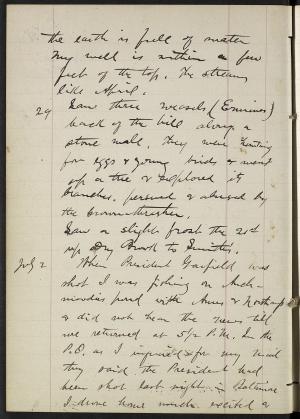 the earth is full of water
My well is within a few
feet of the top. The streams
like April.
29 Saw three weasels (Ermines)
back of the hill along a
stone wall. They were hunting
for eggs & young birds & went
up a tree & explored its
branches, pursued & abused by
the brown thrasher.
Saw a slight frost the 21st
up Dry Brook to
July 2 When President Garfield was
shot I was fishing on
pond with & Northrop
& did not hear the news till
we returned at 5 1/2 P.M. In the
P.O. as I inquired for my mail
they said the President had
been shot last night in Baltimore
I drove home much excited &